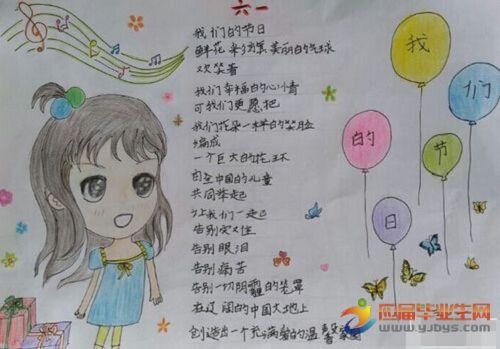 六一
我们的节日
鲜花 美丽的气球
欢笑着
我们幸福的心情
可我们更愿把
我们花朵一样的笑脸
编成
一个巨大的花环
由全中国的儿童
共同举起
让我们一起
告别
告别眼泪
告别痛苦
告别一切阴霾的笼罩
在辽阔的中国大地上
创造出一个充满爱的温馨家园
我
们
的
节
日
应届毕业生网
www.yjbys.com